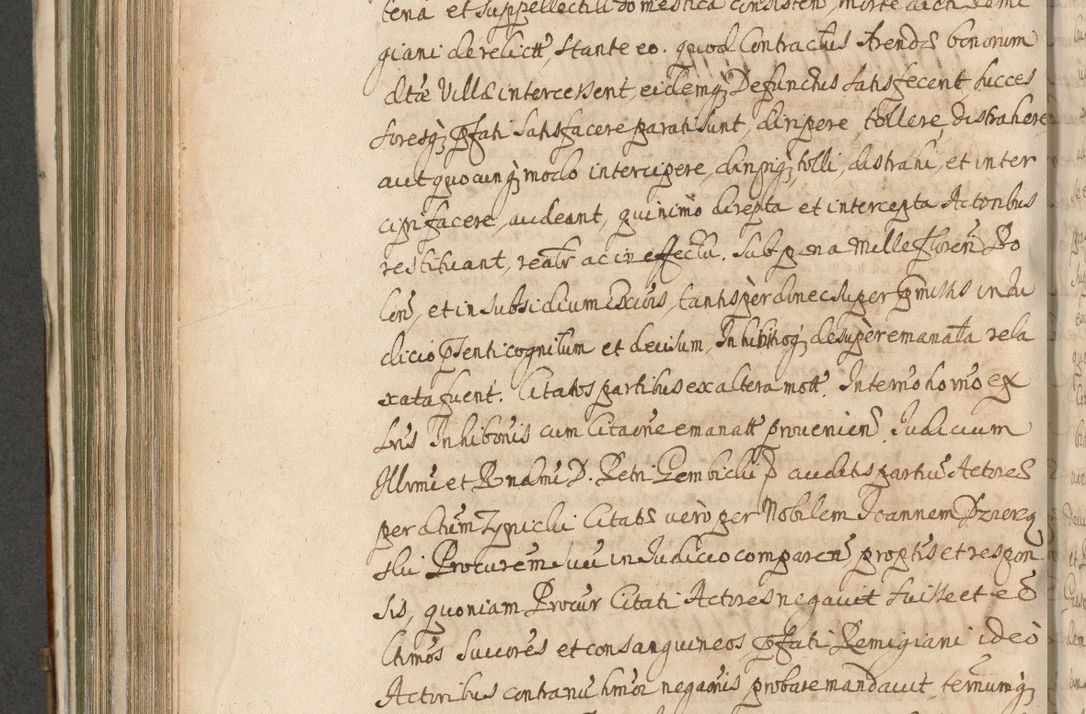 tena et suppellectili domestica consisten, morte dicti Remi
giani derelictt, stante eo. quod Contractus Arendæ bonorum
dtæ Villæ intercesserit, eidemq Defunctus satisfecerit succes
soresq pfati satisfacere parati sunt, diripere, tollere, distrahere
aut quocunq modo intercipere, diripiq, tolli, distrahi, et inter
cipi facere, audeant, quinimo direpta et intercepta Actoribus
restituant, realr ac in effectu. Sub pena Mille Floren Po
len, et in subsidium Excois, tantisper donec super pmissis in Iu
dicio psenti cognitum et decisum, Inhibitioq desuper emanata rela
xata fuerit. Citatos partibus ex altera mott. In termo hodierno ex
lris Inhibonis cum Citaone emanatt provenien. Iudicium
Illrmi et Rndmi D. Petri Gembicki P auditis partium Actores
per dnum Zynicki Citatos vero per Nobilem Joannem Pznercz
ski Procurem suu in Iudicio comparen proptis et respon
sis, quoniam Procur Citati Actores negavit fuisse et esse
ltimos Succres et consanguineos pfati Remigiani ideo
Actoribus contranu hmoi negaonis probare mandavit, terminumq